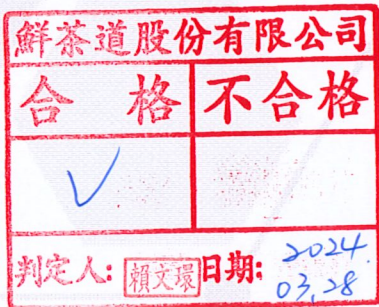 鮮茶道股份有限公司
合格 不合格
✓
判定人: 賴文環 日期: 2024.
03.28